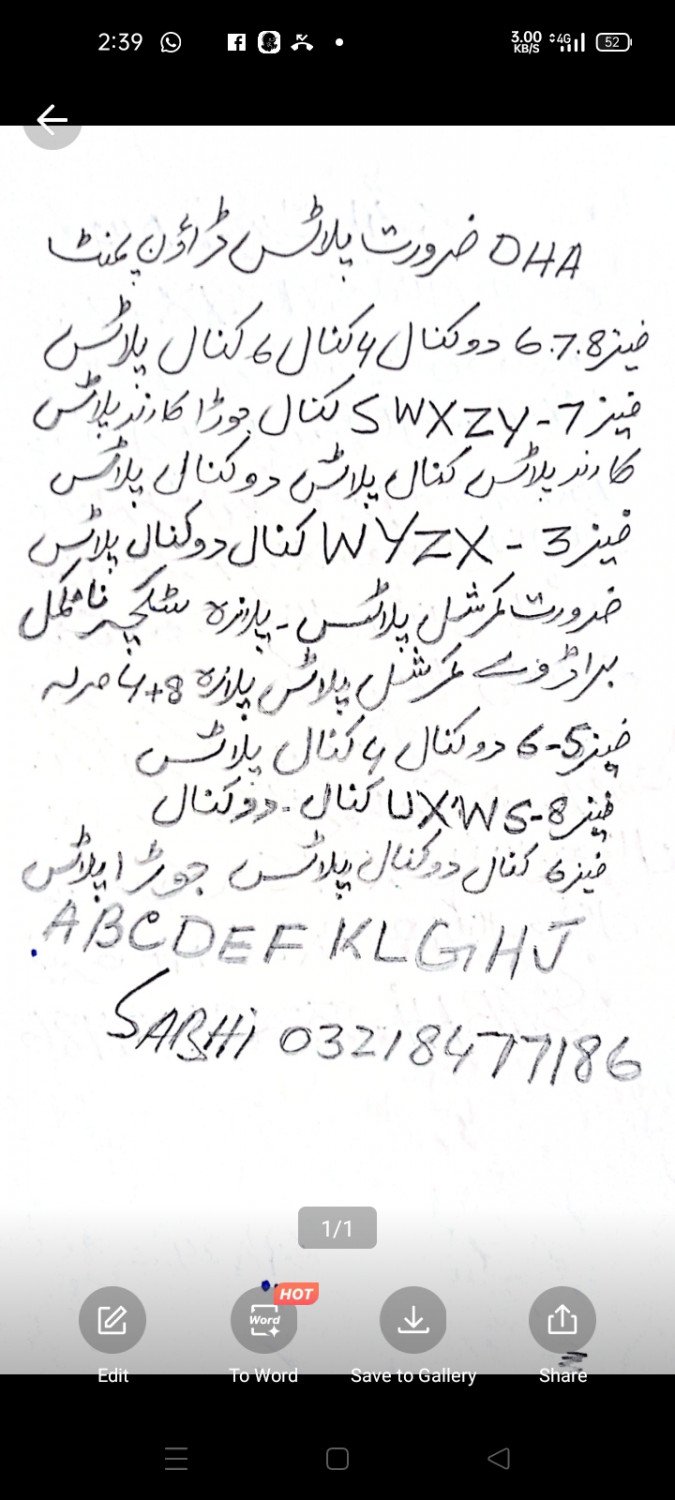 2:39 3.00 KB/S 4G 52
DHA ضرورت پلاٹس ڈاؤن پمنٹ
فیز 6.7.8 دو کنال 4 کنال 6 کنال پلاٹس
فیز 7 - S W X Z Y کنال جوڑا کارنر پلاٹس
کارنر پلاٹس کنال پلاٹس دو کنال پلاٹس
فیز 3 - W Y Z X کنال دو کنال پلاٹس
ضرورت کمرشل پلاٹس - پلازہ سٹکچر نامکمل
براڈوے کمرشل پلاٹس پلازہ 8+4 مرلہ
فیز 5-6 دو کنال 4 کنال پلاٹس
فیز 8 - U X W S کنال - دو کنال
فیز 6 کنال دو کنال پلاٹس جوڑا پلاٹس
A B C D E F K L G H J
SABHi 03218477186
1/1
HOT
Word
Edit To Word Save to Gallery Share